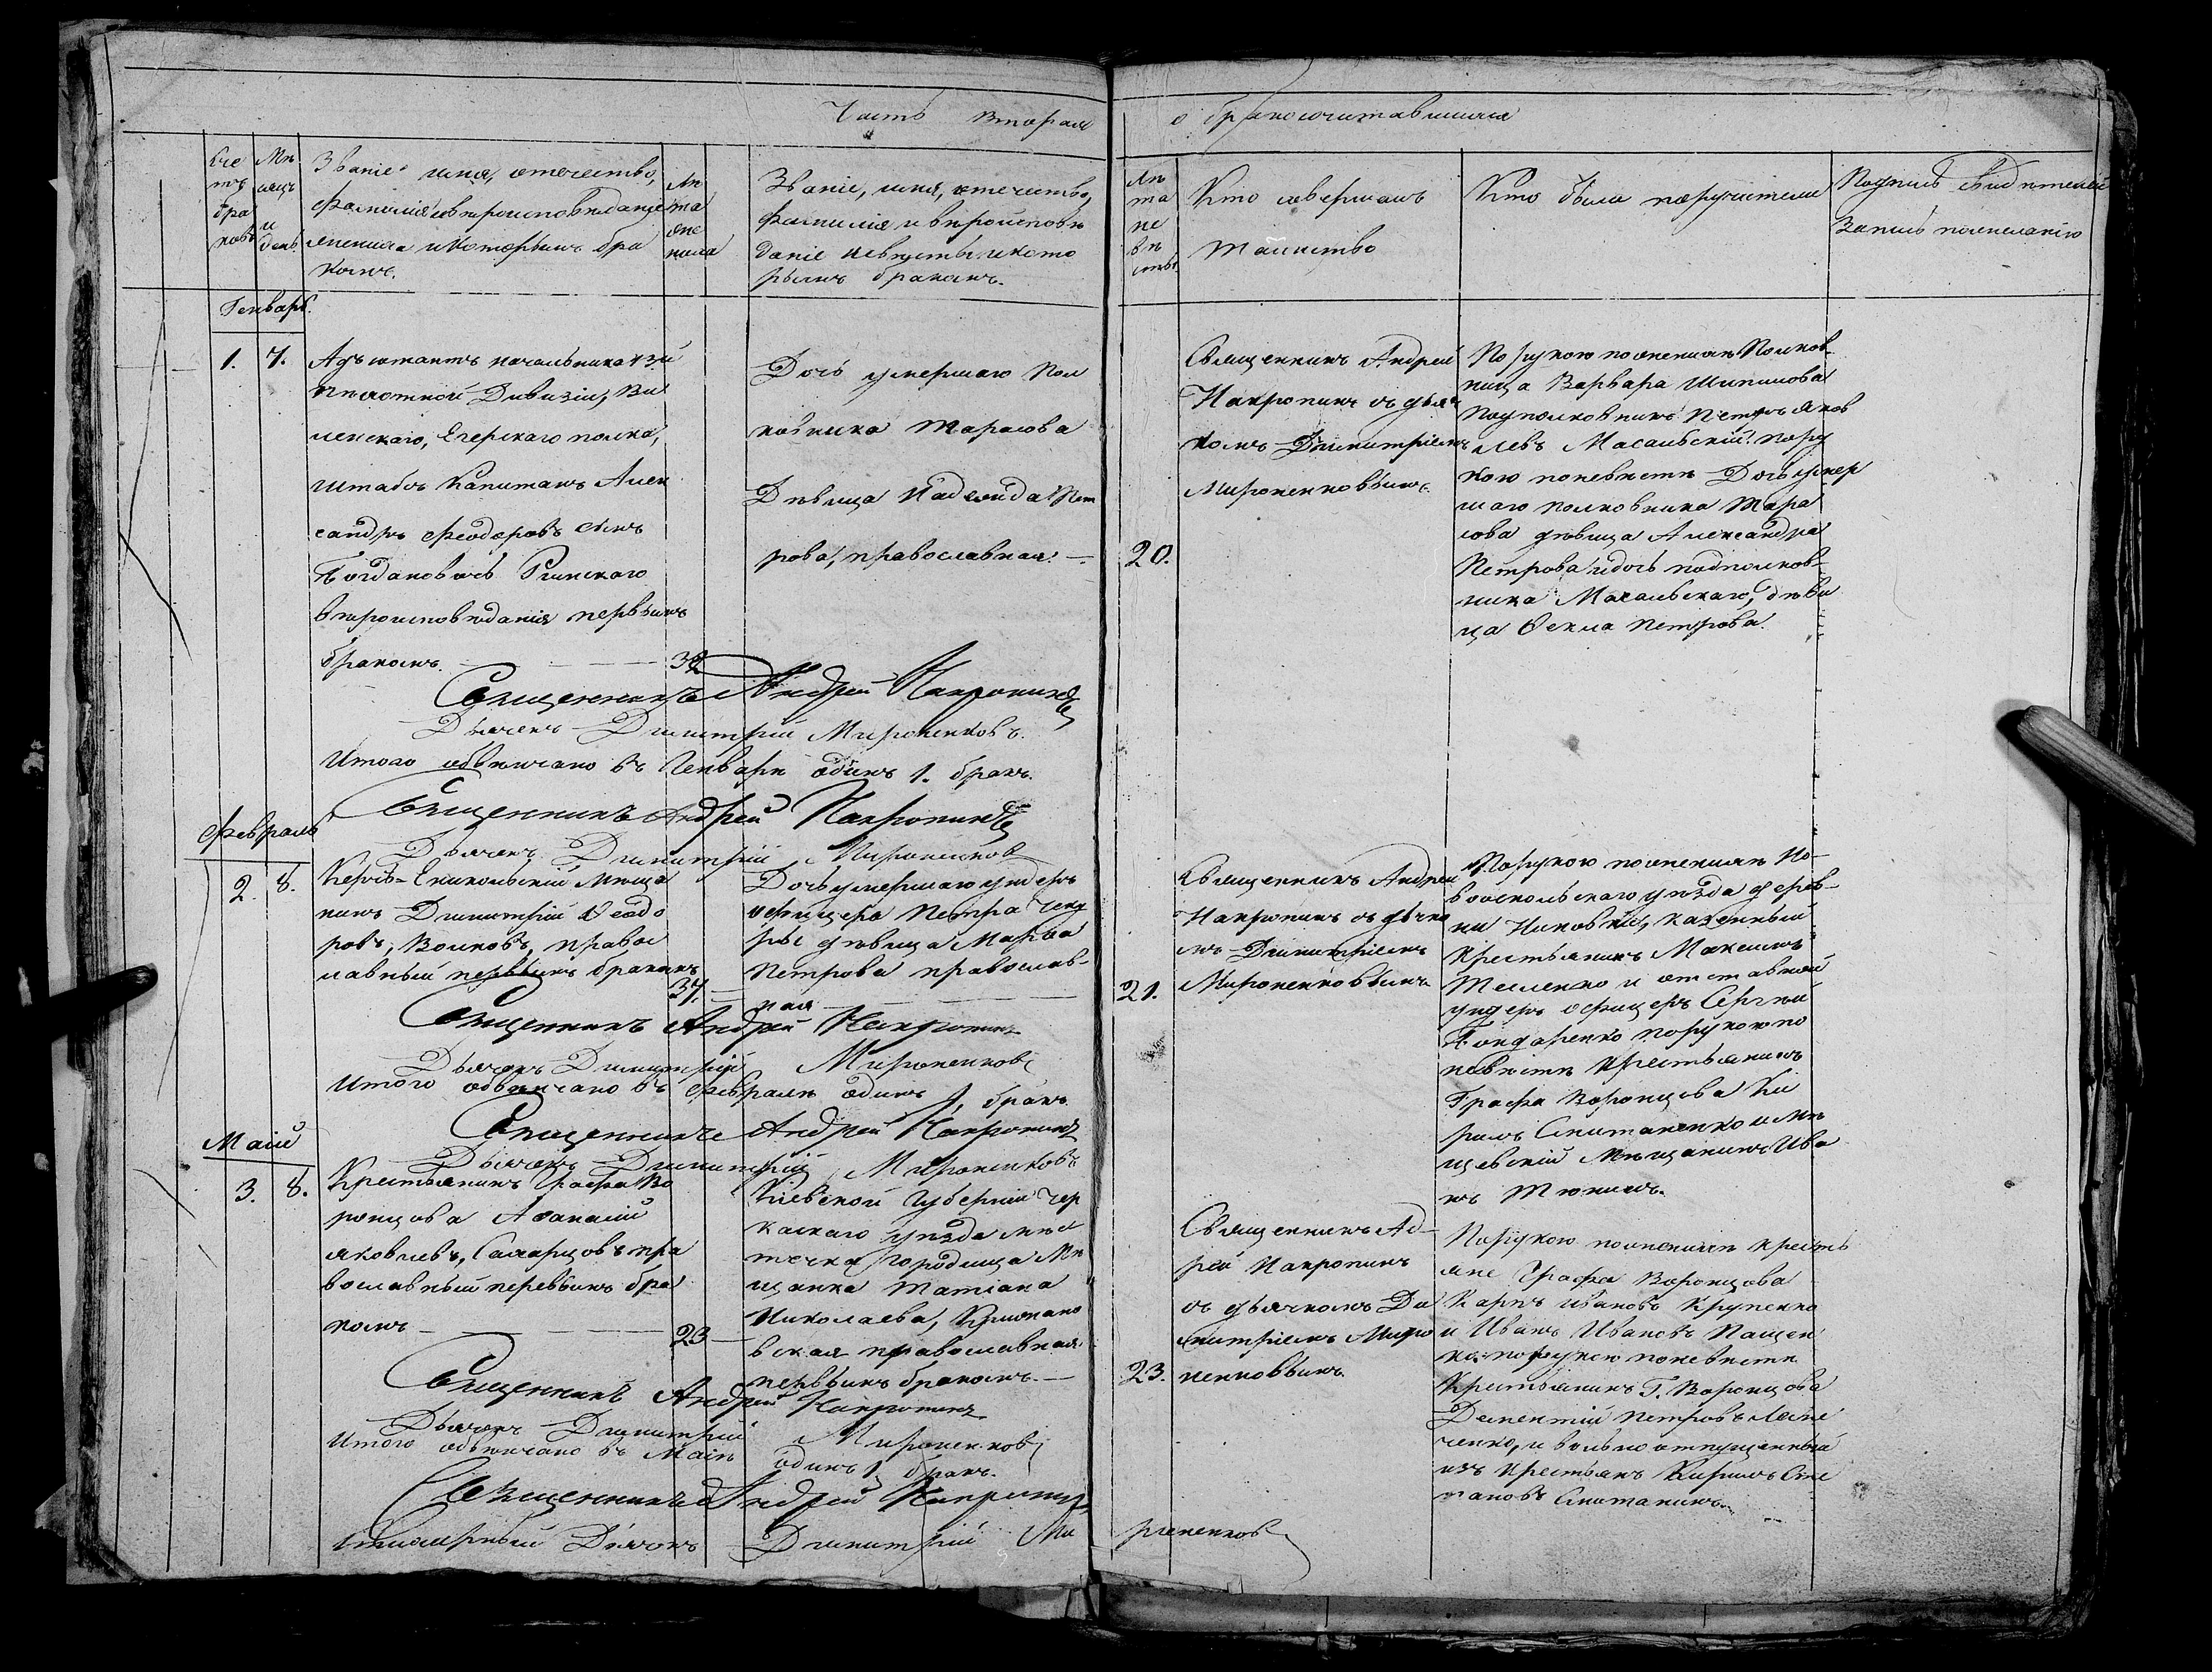 Часть вторая
о бракосочитавшихся
Сче
тъ
бра
ковъ
Мѣ
сяцъ
и
день.
Званіе имя, отечество,
фамилія и вѣроисповѣданіе
жениха и которымъ бра
комъ.
Лѣ
та
же
ниха
Званіе, имя, отечество,
фамилія, и вѣроисповѣ
даніе невѣсты и кото
рымъ бракомъ.
Лѣ
та
не
вѣ
сты.
Кто совершалъ
таинство
Кто были поручители
Подпись свидѣтелей
Запись по желанію
Генварь.
1. 7.
Адъютантъ начальника 13й
пѣхотной Дивизіи, Ви
ленскаго, Егерскаго полка,
Штабсъ Капитанъ Алек
сандръ Феодоровъ сынъ
Богдановичъ Римскаго
вѣроисповѣданія первымъ
бракомъ.
32
Дочь умершаго Пол
ковника Тарасова
Дѣвица Надежда Пет
рова, православная. —
20.
Священникъ Андрей
Накропинъ съ дьяч
комъ Димитріемъ
Мироненковымъ.
Порукою по женихѣ Полков-
ница Варвара Шипилова
Подполковникъ Петръ Яков
левъ Масальскій. пору
кою по невѣстѣ Дочь умер
шаго полковника Тара
сова дѣвица Александра
Петрова и дочь подполков-
ника Масальскаго, дѣви
ца Фекла Петрова.
Священникъ Андрей Накропинъ
Дьячекъ Димитрій Мироненковъ.
Итого обвѣнчано въ Генварѣ одинъ 1. бракъ.
Священникъ Андрей Накропинъ
Дьячекъ Димитрій Мироненков
Февраль
2. 8.
Керчь-Еникольскій мѣща
нинъ Димитрій Феодо
ровъ, Волковъ, право
славный первымъ бракомъ
37.
Дочь умершаго ундеръ
офицера Петра
дѣвица Марфа
Петрова православ-
ная
21.
Священникъ Андрей
Накропинъ съ дьячко
мъ Димитріемъ
Мироненковымъ
Порукою по женихѣ Но-
вооскольскаго уѣзда дерев-
ни казенный
Крестьянинъ Максимъ
Тесленко и отставной
ундеръ офицеръ Сергѣй
Бондаренко порукою по
невѣстѣ крестьянинъ
Графа Воронцова Ки
рилъ Скитаненко и
мѣщанинъ Ива
нъ Тюнинъ.
Священникъ Андрей Накропинъ
Дьячекъ Димитрій Мироненковъ
Итого обвѣнчано въ Февралѣ одинъ 1. бракъ.
Священникъ Андрей Накропинъ
Дьячекъ Димитрій Мироненковъ
Маій
3. 8.
Крестьянинъ Графа Во
ронцова Афанасій
Яковлевъ, пра
вославный первымъ бра
комъ
23
Кіевской Губерніи Чер
каскаго уѣзда мѣс
течка Городища мѣ
щанка Татіана
Николаева,
православная
первымъ бракомъ. —
23.
Священникъ Ад-
рей Накропинъ
съ дьячкомъ Ди
митріемъ Миро
ненковымъ.
Порукою по женихѣ кресть
яне Графа Воронцова
Карпъ Ивановъ Крупенко
и Иванъ Ивановъ Пащен
ко. порукою по невѣстѣ
Крестьянинъ Г. Воронцова
Дементій Петровъ
и вольно отпущенный
изъ крестьянъ Кирилъ Сте
пановъ Скитанинъ.
Священникъ Андрей Накропинъ
Дьячекъ Димитрій Мироненковъ
Итого обвѣнчано въ Маіѣ одинъ 1. бракъ.
Священникъ Андрей Накропинъ
Дьячекъ Димитрій Ми роненковъ